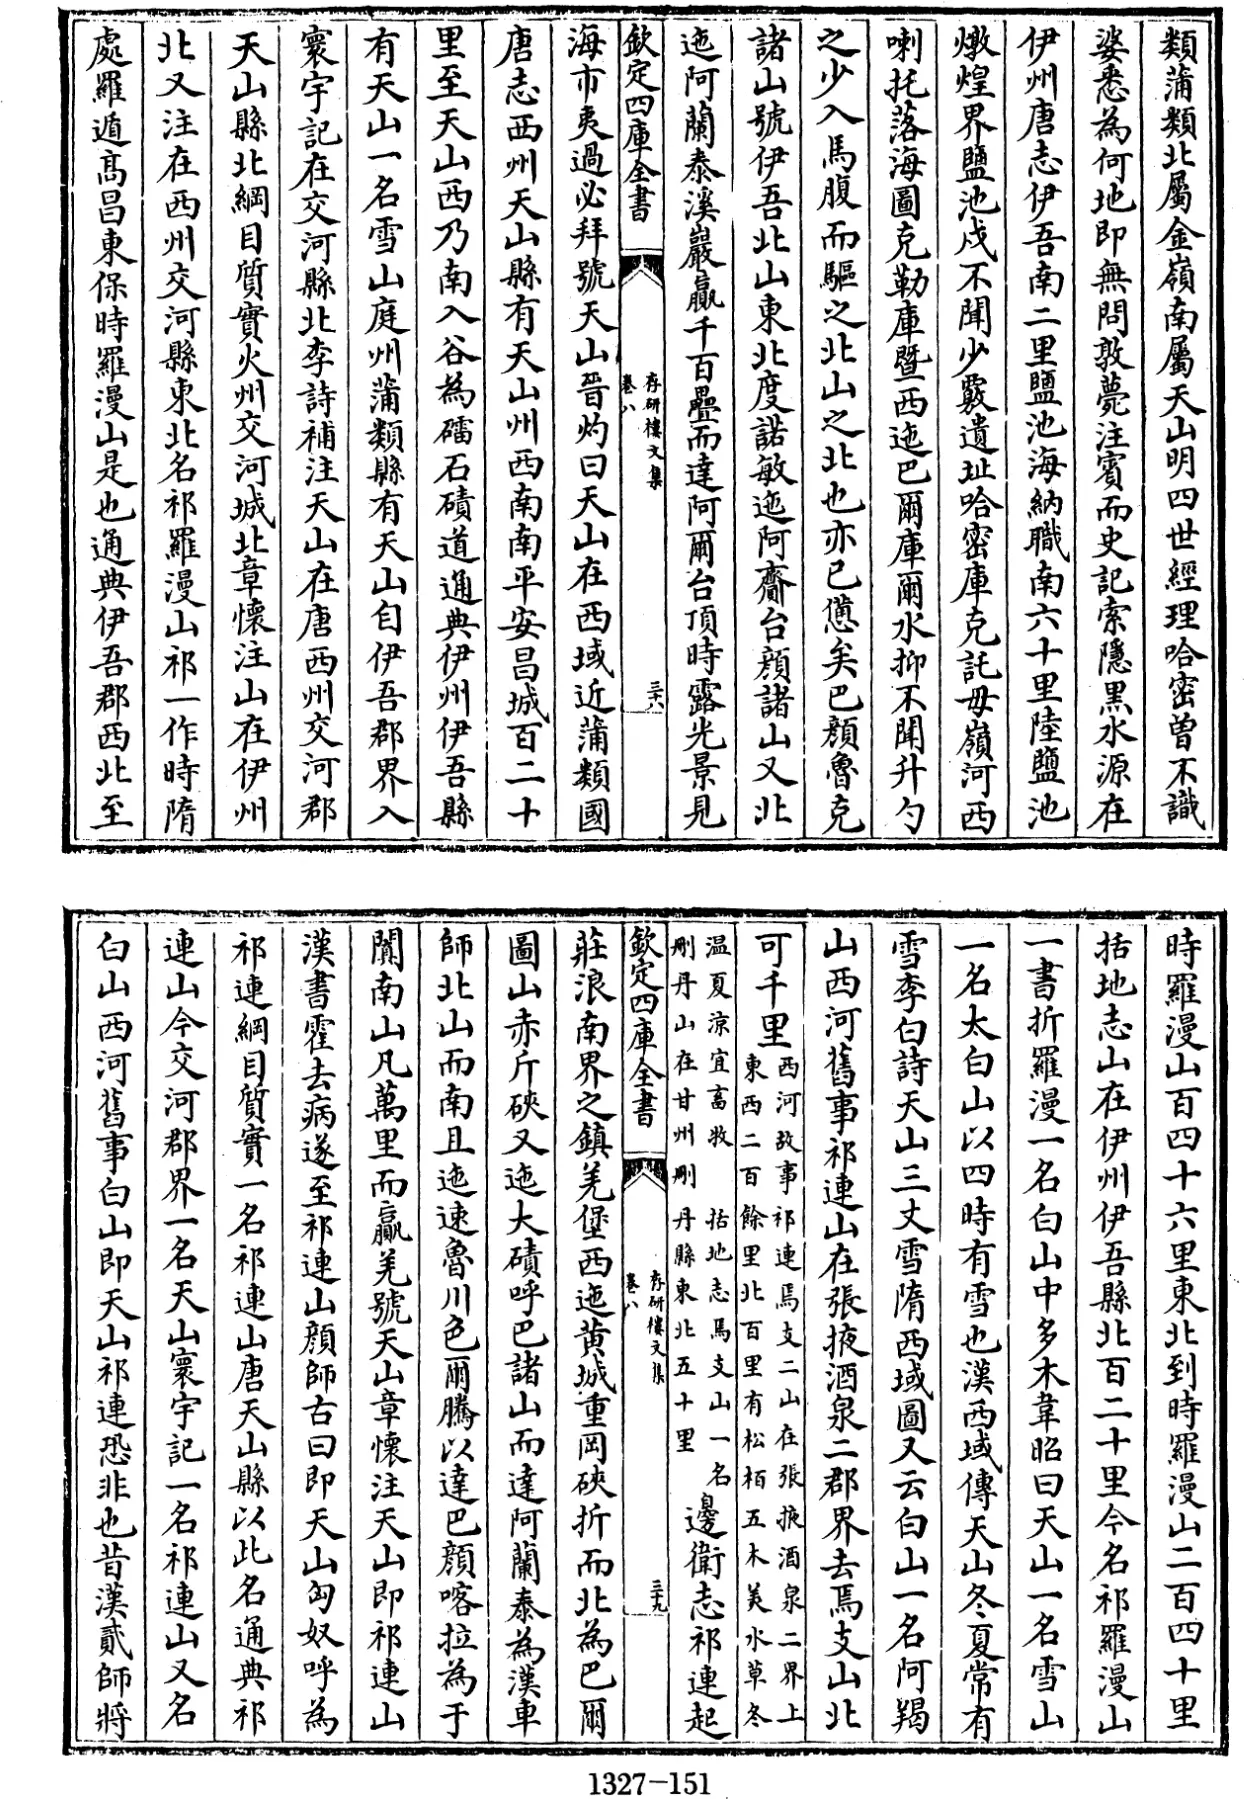 類蒲類北屬金嶺南屬天山明四世經理哈密曾不識
婆悉為何地即無問敦薨注賓而史記索隱黑水源在
伊州唐志伊吾南二里鹽池海納職南六十里陸鹽池
燉煌界鹽池戍不聞少覈遺址哈密庫克託毋嶺河西
喇托落海圖克勒庫暨西迤巴爾庫爾水抑不聞升勺
之少入馬腹而驅之北山之北也亦已憊矣巴顏魯克
諸山號伊吾北山東北度諾敏迤阿齋台顏諸山又北
迤阿蘭泰溪巖贏千百疊而達阿爾台頂時露光景見
欽定四庫全書
存研樓文集
卷八
三十八
海市夷過必拜號天山晉灼曰天山在西域近蒲類國
唐志西州天山縣有天山州西南南平安昌城百二十
里至天山西乃南入谷為礌石磧道通典伊州伊吾縣
有天山一名雪山庭州蒲類縣有天山自伊吾郡界入
寰宇記在交河縣北李詩補注天山在唐西州交河郡
天山縣北綱目質實火州交河城北章懷注山在伊州
北又注在西州交河縣東北名祁羅漫山祁一作時隋
處羅遁高昌東保時羅漫山是也通典伊吾郡西北至
時羅漫山百四十六里東北到時羅漫山二百四十里
括地志山在伊州伊吾縣北百二十里今名祁羅漫山
一書折羅漫一名白山中多木韋昭曰天山一名雪山
一名太白山以四時有雪也漢西域傳天山冬夏常有
雪李白詩天山三丈雪隋西域圖又云白山一名阿羯
山西河舊事祁連山在張掖酒泉二郡界去焉支山北
可千里西河故事祁連焉支二山在張掖酒泉二界上
東西二百餘里北百里有松栢五木美水草冬
溫夏涼宜畜牧 括地志焉支山一名
刪丹山在甘州刪丹縣東北五十里邊衛志祁連起
欽定四庫全書
存研樓文集
卷八
三十九
莊浪南界之鎮羌堡西迤黄城重岡硤折而北為巴爾
圖山赤斤硤又迤大磧呼巴諸山而達阿蘭泰為漢車
師北山而南且迤速魯川色爾騰以達巴顏喀拉為于
闐南山凡萬里而贏羌號天山章懷注天山即祁連山
漢書霍去病遂至祁連山顏師古曰即天山匈奴呼為
祁連綱目質實一名祁連山唐天山縣以此名通典祁
連山今交河郡界一名天山寰宇記一名祁連山又名
白山西河舊事白山即天山祁連恐非也昔漢貳師將
1327-151